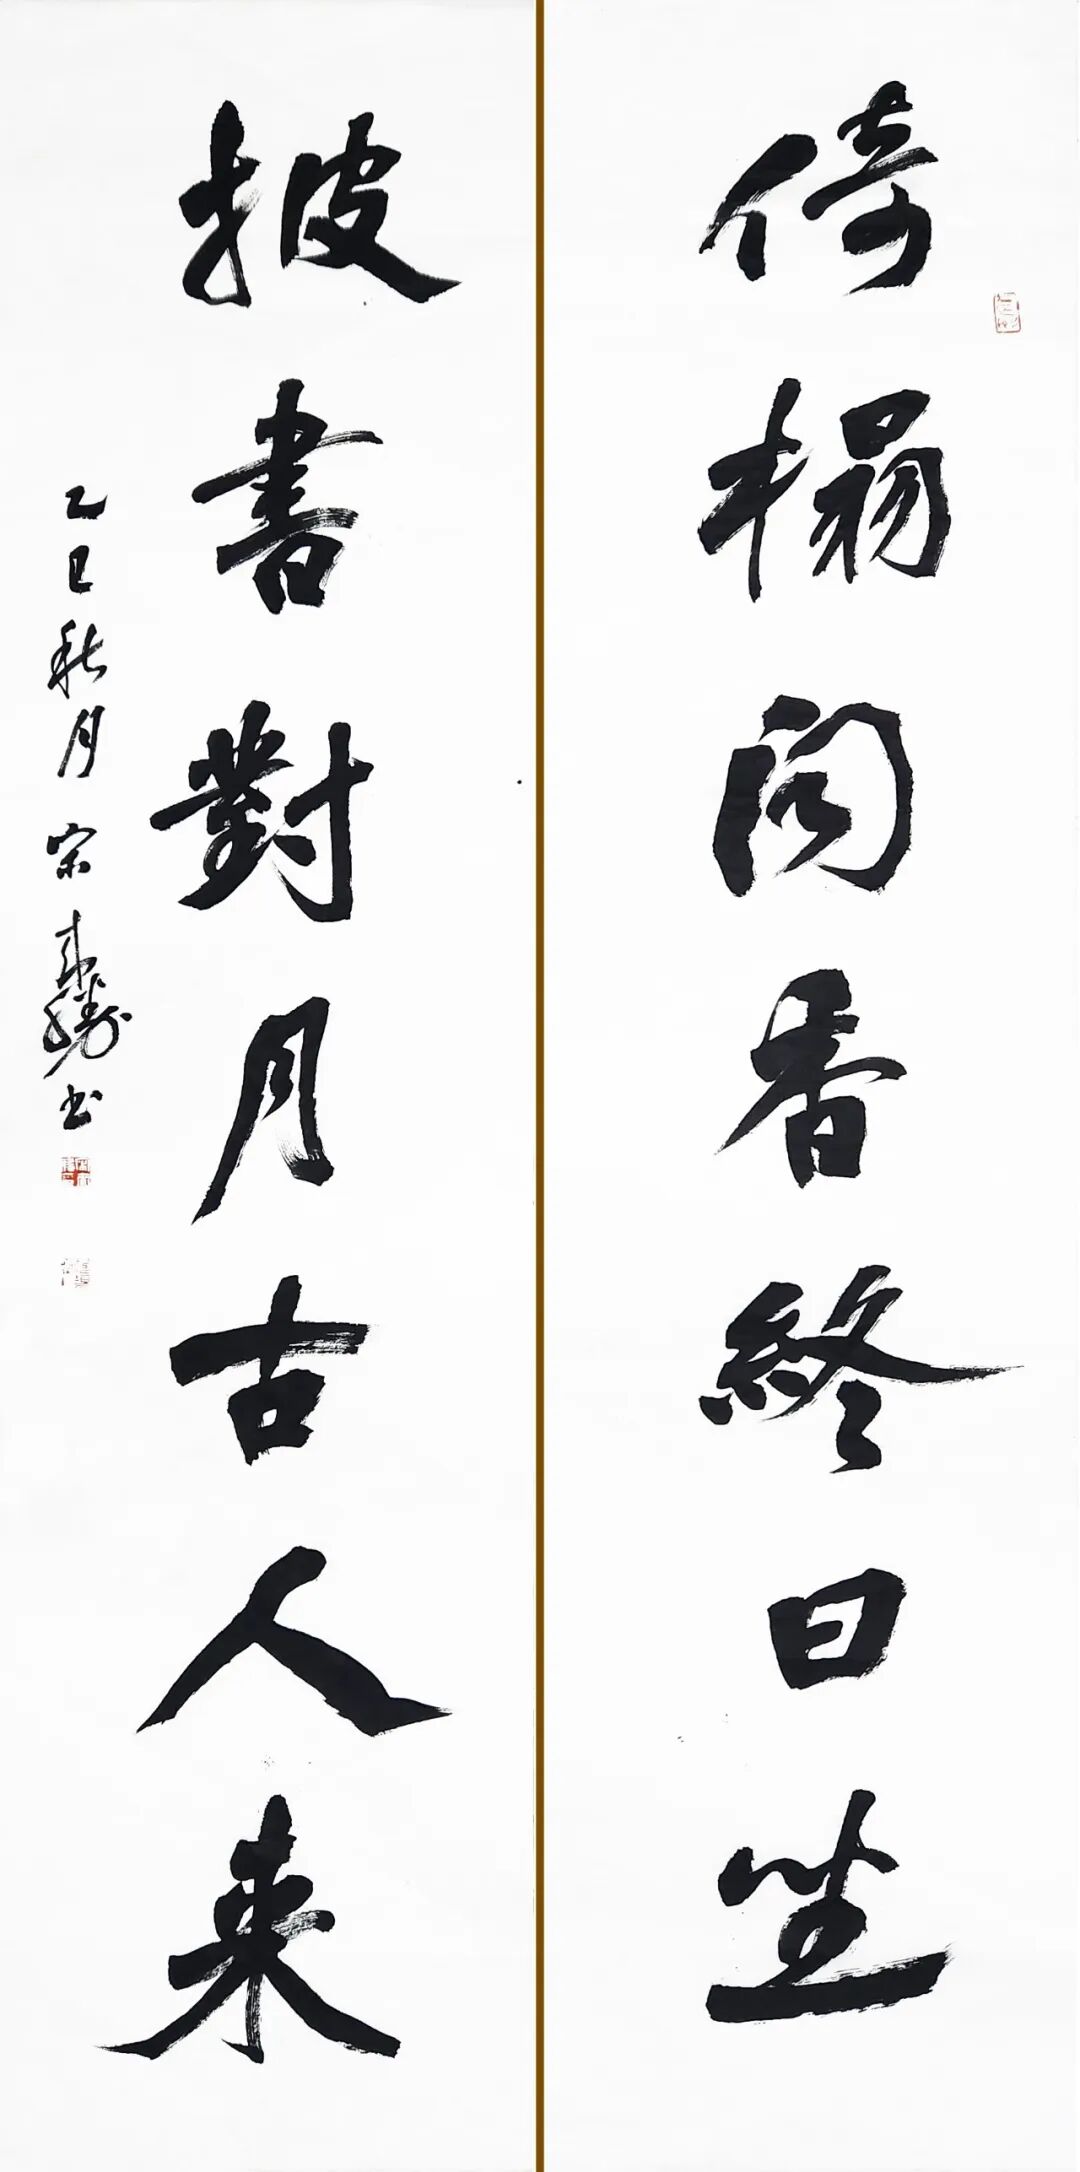 倚榻闻香終日坐
披書對月古人来
乙巳秋月 宗
书